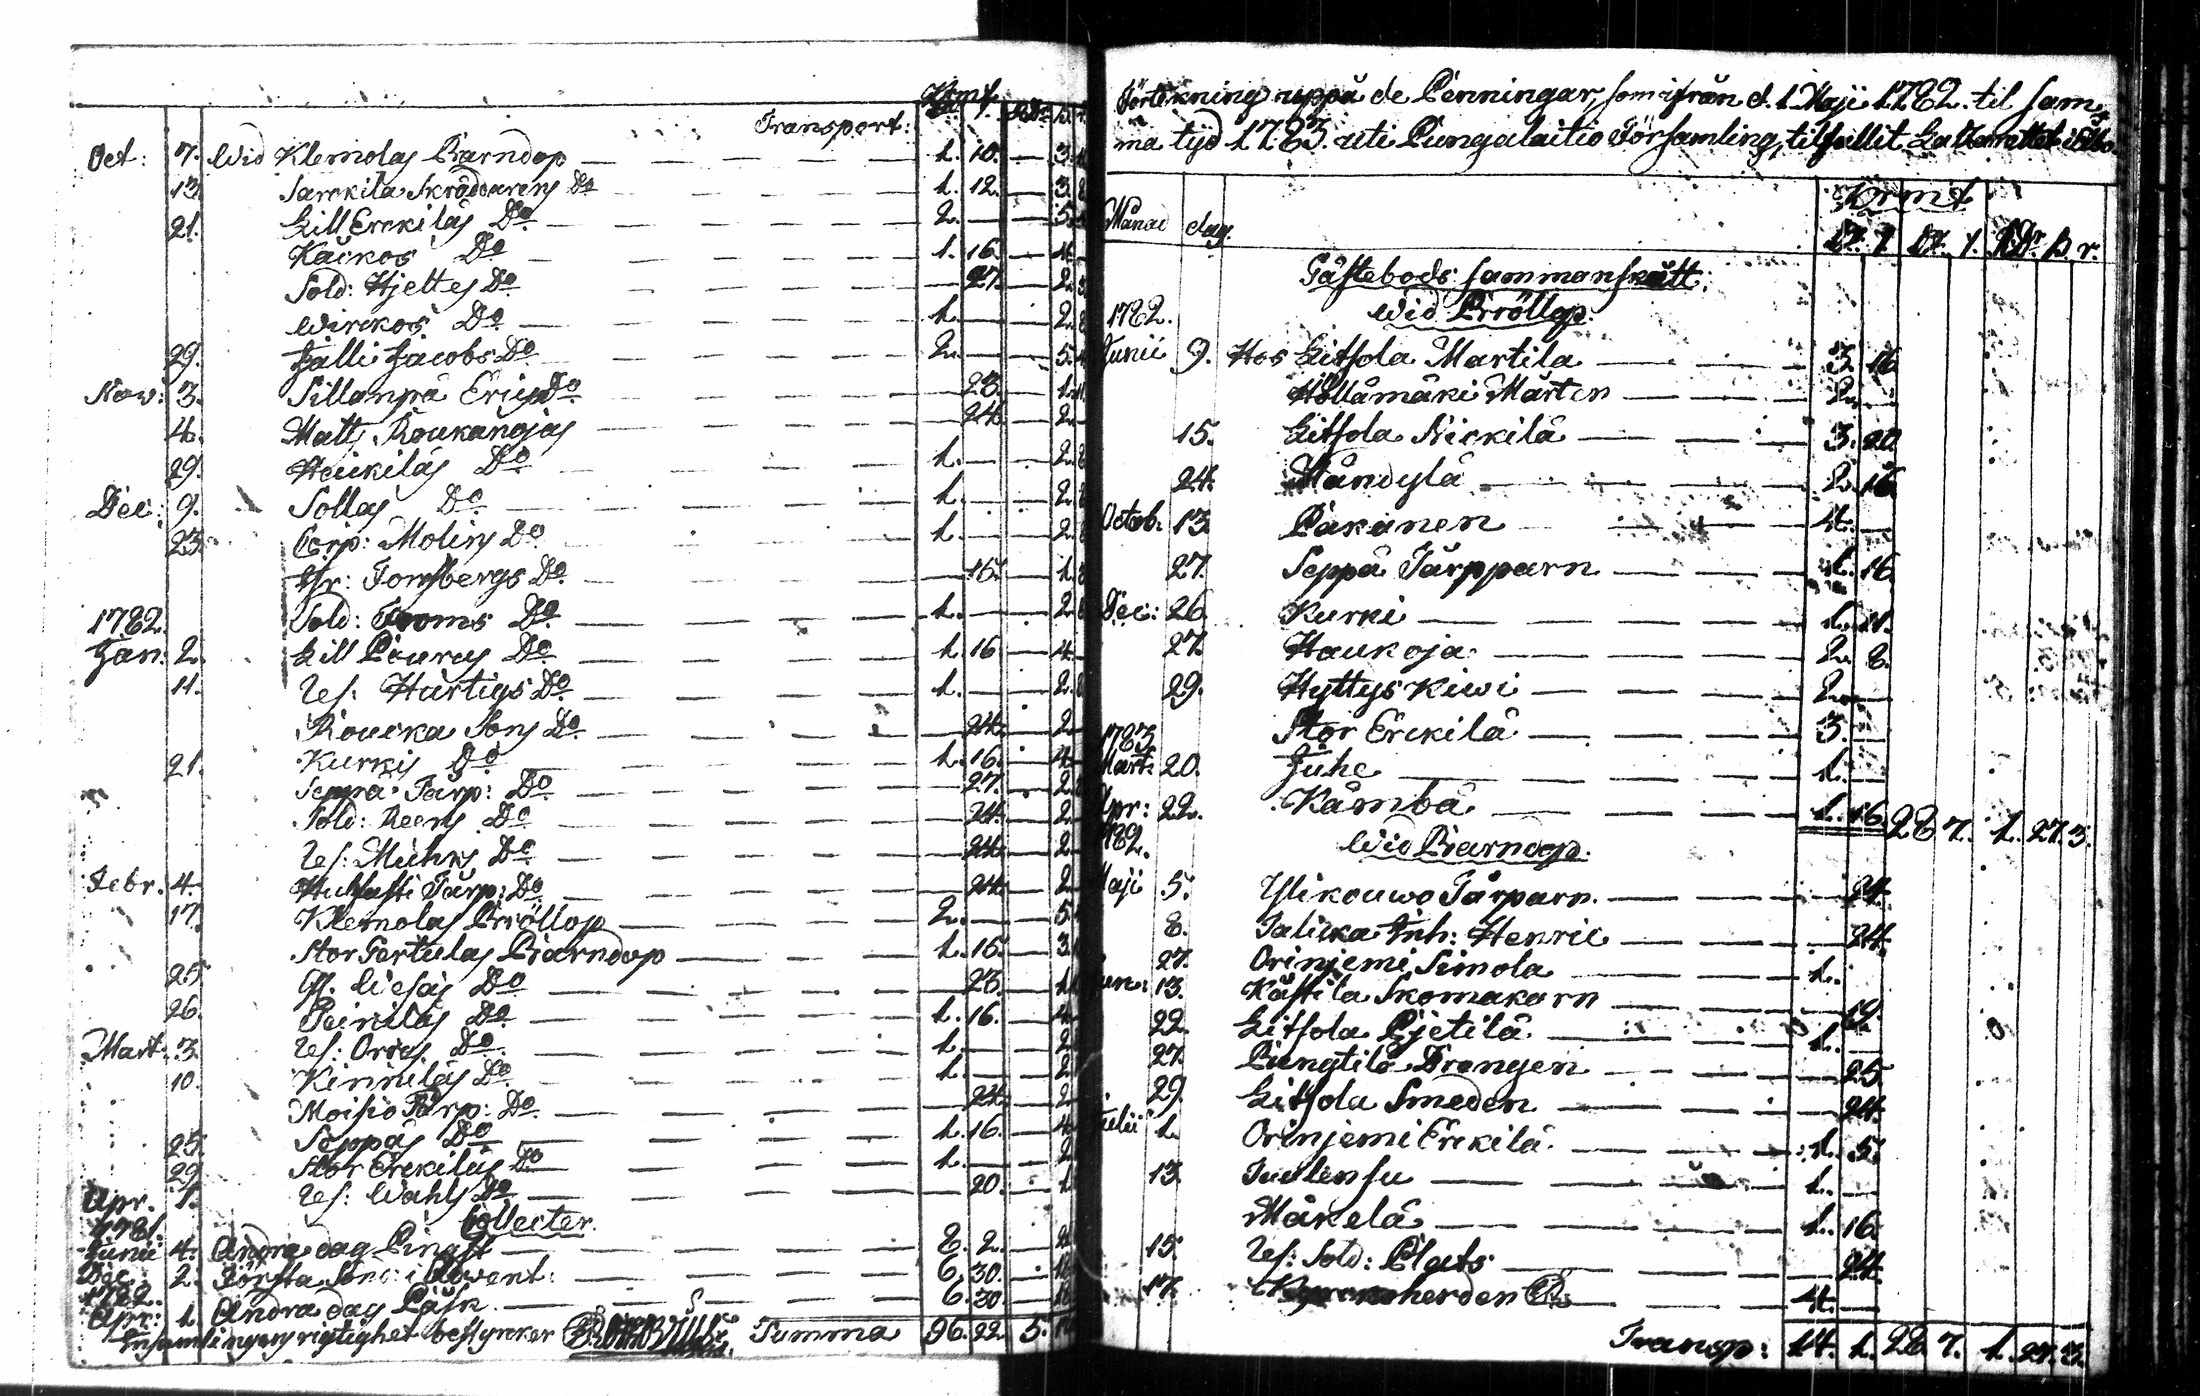 Transport:
Oct: 7. Wid Klemolas Barndop 1. 10. 3.
13. Sarckila Skräddarens Do 1. 12. 3.
21. Lill Erckiläs Do 2. 5.
Käckos Do 1. 16. 4.
Sold: Hjeltes Do 27. 2.
Wirckos Do 1. 2.
29. Jälli Jacobs Do 2. 5.
Nov: 3. Sillanpä Erics Do 23. 1.
4. Matts Roukanojas 24. 2.
29. Heickiläs Do 1. 2.
Dec: 9. Sollas Do 1. 2.
23. Corp: Molins Do 1. 2.
Hr: Fonsbergs Do 15. 1.
1782. Sold: Froms Do 1. 2.
Jan: 2. Lill Pourus Do 1. 16 4.
11. Ref: Hurtigs Do 1. 2.
Roucka Sons Do 24. 2.
21. Kurkis Do 1. 16. 4.
Seppä Tårp: Do 27. 2.
Sold: Reens Do 24. 2
Ref: Muhrs Do 24. 2
Febr. 4. Tårp: Do 24. 2
17. Klemolas Bröllop 2. 5.
Stor Pertulas Barndop 1. 15. 3.
25. Wesas Do 23. 1
26. Peiriläs Do 1. 16. 4.
Mart: 3. Ref: Orres Do 1. 2
10. Kinniläs Do 1. 2
Moisio Tårp: Do 24. 2
25. Seppäs Do 1. 16. 4
29. Stor Erckiläs Do 1. 2
Apr. 1. Ref: Wahls Do 20. 1
Collecter.
1781.
Junii 4. Andra dag Pingst 8. 2.
Dec: 2. Första Sönd: i Advent: 6. 30.
1782.
Apr: 1. Andra dag Påsk 6. 30
Insamlingens rigtighet bestyrcker Summa 96. 22. 5.
Förtekning uppå de Penningar, som ifrån d. 1. Maji 1782. til sam,
ma tyd 1783. uti Pungalaitio Församling, tilfallit Lazarettet i Åbo.
Månad dag.
Gästebods sammanskått.
1782. Wid Bröllop.
Junii 9. Hos Litsola Martila 3. 16
Höllämäki Mårten 2.
15. Litsola Nickilä 3. 20
24. Måndylä 2. 16.
Octob. 13. Päkänen 4.
27. Seppä Tårpparn 1. 16.
Dec: 26. Kurki 1. 11.
27. Haukoja 2. 8.
29. Hyttys Kiwi 2.
Stor Erckilä 3.
1783.
Mart: 20. Juhe 1.
Apr: 22. Kämbä 1. 16. 28 7. 1. 27. 3.
1782. Wid Barndop.
Maji 5. Ylikouwo Tårparn 24.
8. Salicka Inh: Henric 24.
27. Orinjemi Simola 1.
Jun: 13. Kästila Skomakarn 19.
22. Litsola Pjetilä 1.
27. Pungtilä Drengen 25
29. Litsola Smeden 24.
Julii 1. Orinjemi Erckilä 1. 5.
13. Suulensu 1.
Mäkelä 1. 16
15. Ref: Sold: Plats 24.
17. Kyrckoherden 4.
Transp: 14. 1. 28. 7. 1. 27. 3.